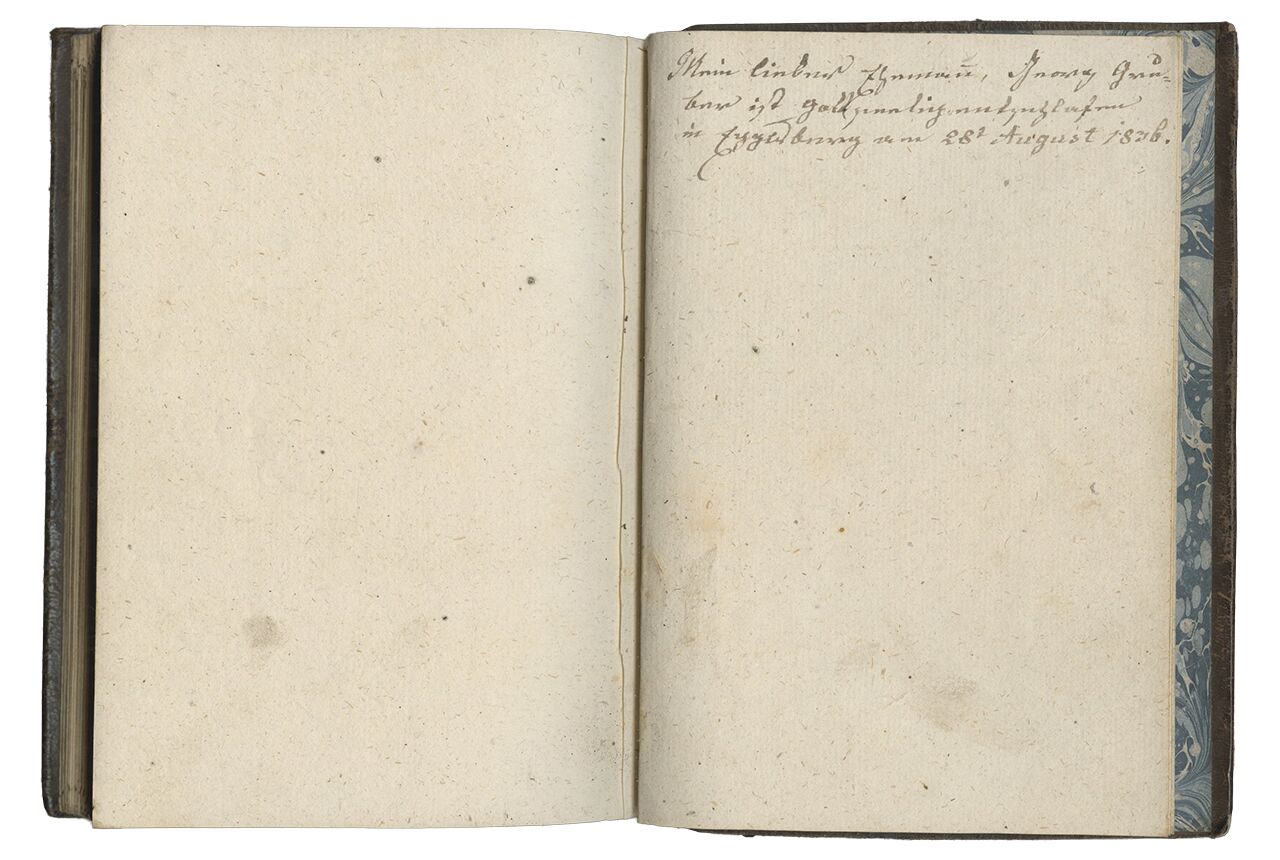 Mein lieber Eheman̄, Georg Gru=
ber ist gottseelig entschlafen
in Eggelsberg am 28t August 1826.